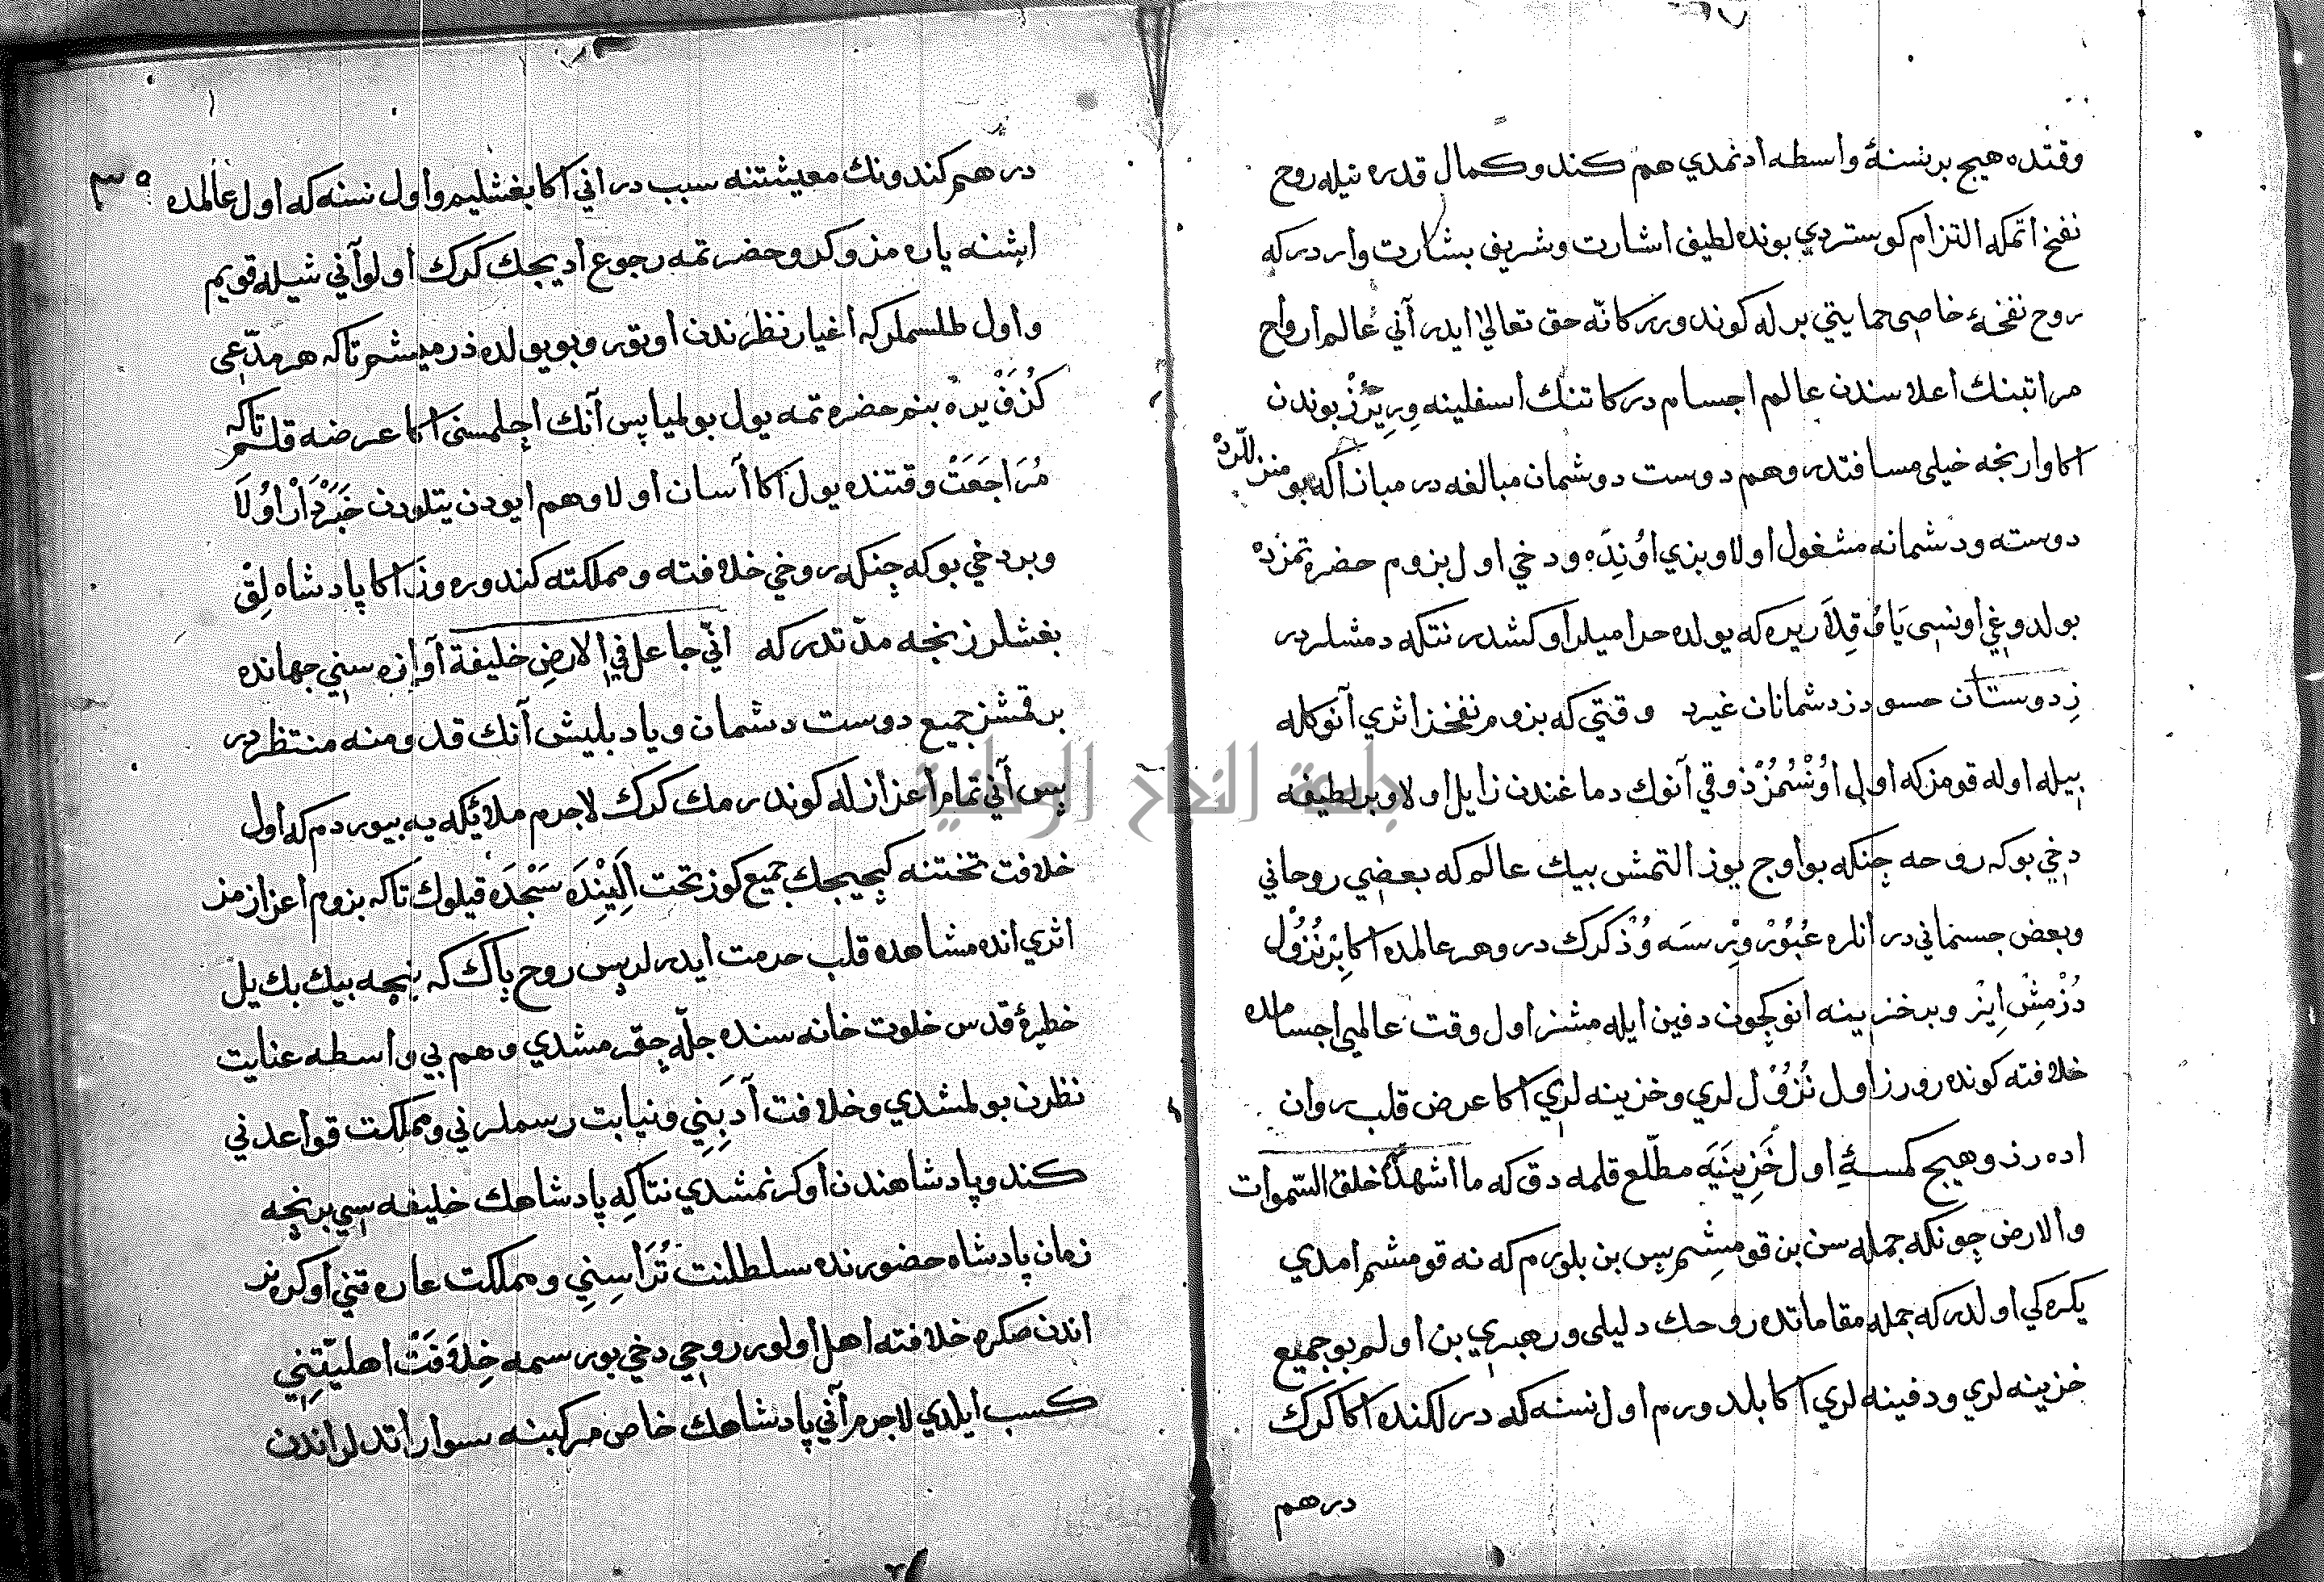 وقتده هيچ برنسنهٔ واسطه ادنمدي هم كندو كمال قدره تيله روح
نفخ اتمكه التزام كوستردي بونده لطيف اشارت وشريف بشارت واردر كه
روح نفخهٔ خاصى حمايتي برله كوندورر كانّه حق تعالىٰ ايدر آني عالم أرواح
مراتبنك أعلاسندن عالم اجسام دركاتنك أسفلينه وِرِيرُزْ بوندن
اكا وارنجه خيلى مسافتدر وهم دوست دوشمان مبالغه در مبان اكه بو منزللردْ
دوسته ودشمانه مشغول اولا وبزي اوُنِدَه ودخي اول بزوم حضرتمزدْ
بولدوغي أونسى ياوُ قِلاَ ريره كه يولده حراميلر أوكشدر نتكه دمشلردر
زِدوستان حسود زدشمانان غيرد وقتي كه بزوم نفخز اثري آنوكله
بيله اوله قومزكه اول اوُنْسُمُزْ ذوقي آنوك دماغندن زايل اولا وبر لطيفه
دخي بوكه روحه چنكه بو اوچ يوز التمش بيك عالم كه بعضي روحاني
وبعض جسماني در انلره عُبُوُرْ ويْرسَه وُزْ كرك در وهر عالمده اكا بِرْ نُزُوْل
دُزْمِشْ اِيزْ وبر خزينه انوكچون دفين ايله مشز اول وقت عالمى اجسامده
خلافته كونده رورز اول نُزُوُل لري وخزينه لري اكا عرض قلب روان
اده رز وهيچ كمسهٔ اول خَزِينَيَه مطلّع قلمه دق كه ما اشهدتهم خلق السّموات
والارض چونكه جمله سن بن قومشم پس بن بلورم كه نه قومشم امدي
يكره كي اولدر كه جمله مقاماتده روحك دليلى ورهبري بن أولم بو جميع
خزينه لري ودفينه لري اكا بلدورم اول نسنه كه در لكنده اكا كرك
درهم
٣٥
در هم كندونك معيشتنه سبب در اني اكا بغشليم وأول نسنه كه اول عالمده
ايشنه ياره مز وكرو حضرتمه رجوع أديجك كرك أولو آني شيله قويم
وأول طلسملر كه اغيار نظرندن أوتور وبو يولده ذرمشم تاكه هر مدّعى
كُزفْ يرهْ بنم حضرتمه يول بولميا پس آنك اچلمسنى اكا عرضه قلم تاكه
مُرَاجَعَتْ وقتنده يول اكا آسان اولا وهم ايودن يتلودن خَبَرْدَارْ اوُلَا
وبر دخي بوكه چنكه روحي خلافته ومملكته كندوره وز اكا پادشاه لِقْ
بغشلرز نجه مدّتدر كه انّي جاعل في الارضِ خليفة آوازه سني جهانده
برقمشز جميع دوست دشمان وياد بليش آنك قدومنه منتظر در
پس آني تمام أعزاز له كوندرمك كرك لاجرم ملائكه يه بيوردم كه أول
خلافت تختنه كيجيجك جميع كوز تخت اَلِيْنِدَه سَجْدَه قيلوك تاكه بزوم أعزازمز
اثري انده مشاهده قلب حرمت أيدر لر پس روح پاك كه نيچه بيك بك يل
خطيرهٔ قدس خلوت خانه سنده جلّه چقرمشدي وهم بي واسطه عنايت
نظرن بولمشدي وخلافت آدَبِيني ونيابت رسملرني ومملكت قواعدني
كندو پادشاهندن أوكرنمشدي نتاكه پادشاهك خليفه سي برنچه
زمان پادشاه حضورنده سلطلنت تُرَاسِنِي ومملكت عاره تني أوكره نر
اندن صكره خلافته أهل أولور روحي دخي بورسمه خِلَافَتْ اهليّتِنِي
كسب أيلدي لاجرم آني پادشاهك خاص مركبنه سوار أتدلر اندن
جامعة النجاح الوطنية